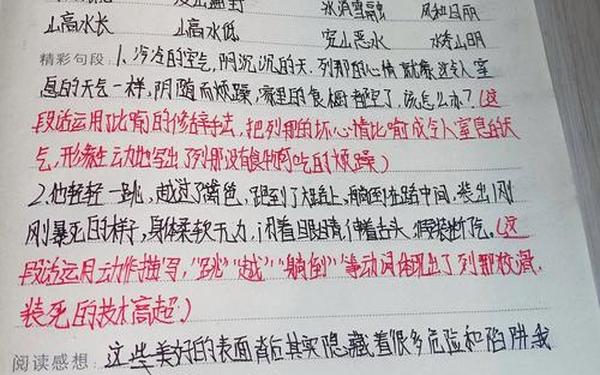 冰消雪融 风和日丽
山高水长 山高水低 穷山恶水 水秀山明
精彩句段：1、冷冷的空气，阴沉沉的天.列那的心情就像这令人窒
息的天气一样，阴随而烦躁，家里的食橱都空了，该怎么办？（这
段话运用了比喻的修辞手法，把列那的坏心情比喻成令人窒息的天
气，形象生动地写出了列那没有食物可吃的烦躁）
2.他轻轻一跳，越过了篱色，跑到了大路上，躺倒在路中间，装出刚
刚暴死的样子，身体柔软无力，闭着眼睛，伸着舌头，假装断了气。（这
段话运用动作描写，"跳""越""躺倒"等动词体现出了列那狡滑，
装死的技术高超）
阅读感想：这些美好的表面背后其实隐藏着很多危险和陷阱.我